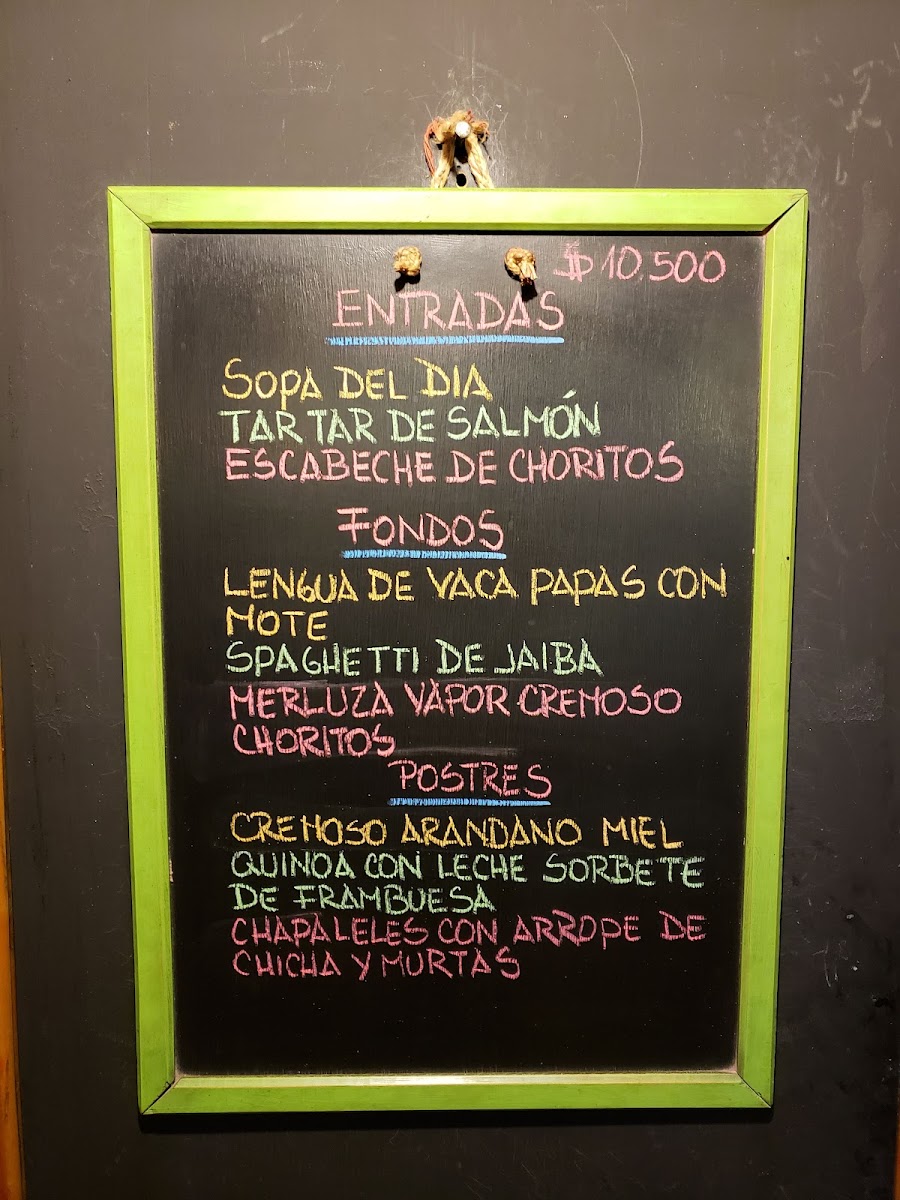 $10.500
ENTRADAS
SOPA DEL DIA
TARTAR DE SALMÓN
ESCABECHE DE CHORITOS
FONDOS
LENGUA DE VACA PAPAS CON
MOTE
SPAGHETTI DE JAIBA
MERLUZA VAPOR CREMOSO
CHORITOS
POSTRES
CREMOSO ARANDANO MIEL
QUINOA CON LECHE SORBETE
DE FRAMBUESA
CHAPALELES CON ARROPE DE
CHICHA Y MURTAS